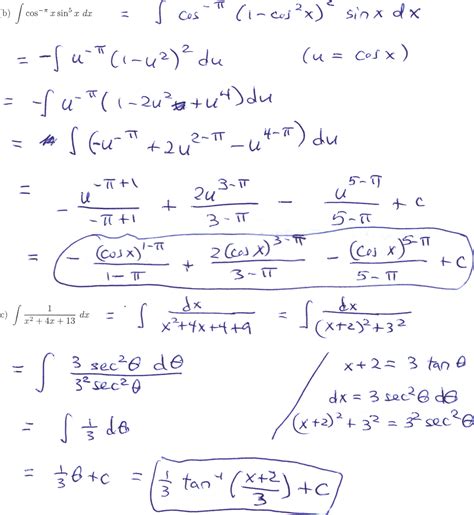 (b) ∫ cos^{-π} x sin^5 x dx = ∫ cos^{-π} (1-cos²x)² sinx dx
= -∫ u^{-π} (1-u²)² du (u = cosx)
= -∫ u^{-π} (1-2u²+u⁴) du
= ∫ (-u^{-π} + 2u^{2-π} - u^{4-π}) du
= - u^{-π+1}/(-π+1) + 2u^{3-π}/(3-π) - u^{5-π}/(5-π) + c
= - (cosx)^{1-π}/(1-π) + 2(cosx)^{3-π}/(3-π) - (cos x)^{5-π}/(5-π) + c
c) ∫ 1/(x²+4x+13) dx = ∫ dx/(x²+4x+4+9) = ∫ dx/((x+2)²+3²)
= ∫ 3 sec²θ dθ/(3² sec²θ)
x+2 = 3 tan θ
dx = 3 sec²θ dθ
(x+2)² + 3² = 3² sec²θ
= ∫ 1/3 dθ
= 1/3 θ + c = 1/3 tan⁻¹ ((x+2)/3) + C